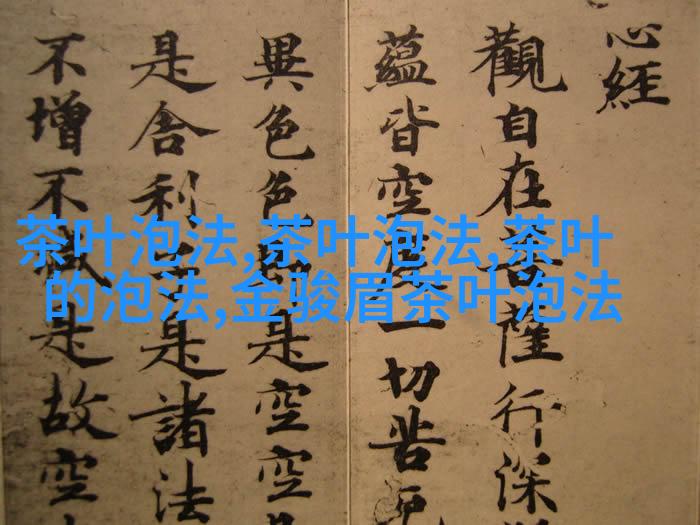 心經
觀自在菩薩行深
蘊皆空度一切苦厄
異色色即是空空
是舍利子是諸法
不增不減是故空
茶叶泡法,茶叶泡法,茶叶
的泡法,金骏眉茶叶泡法